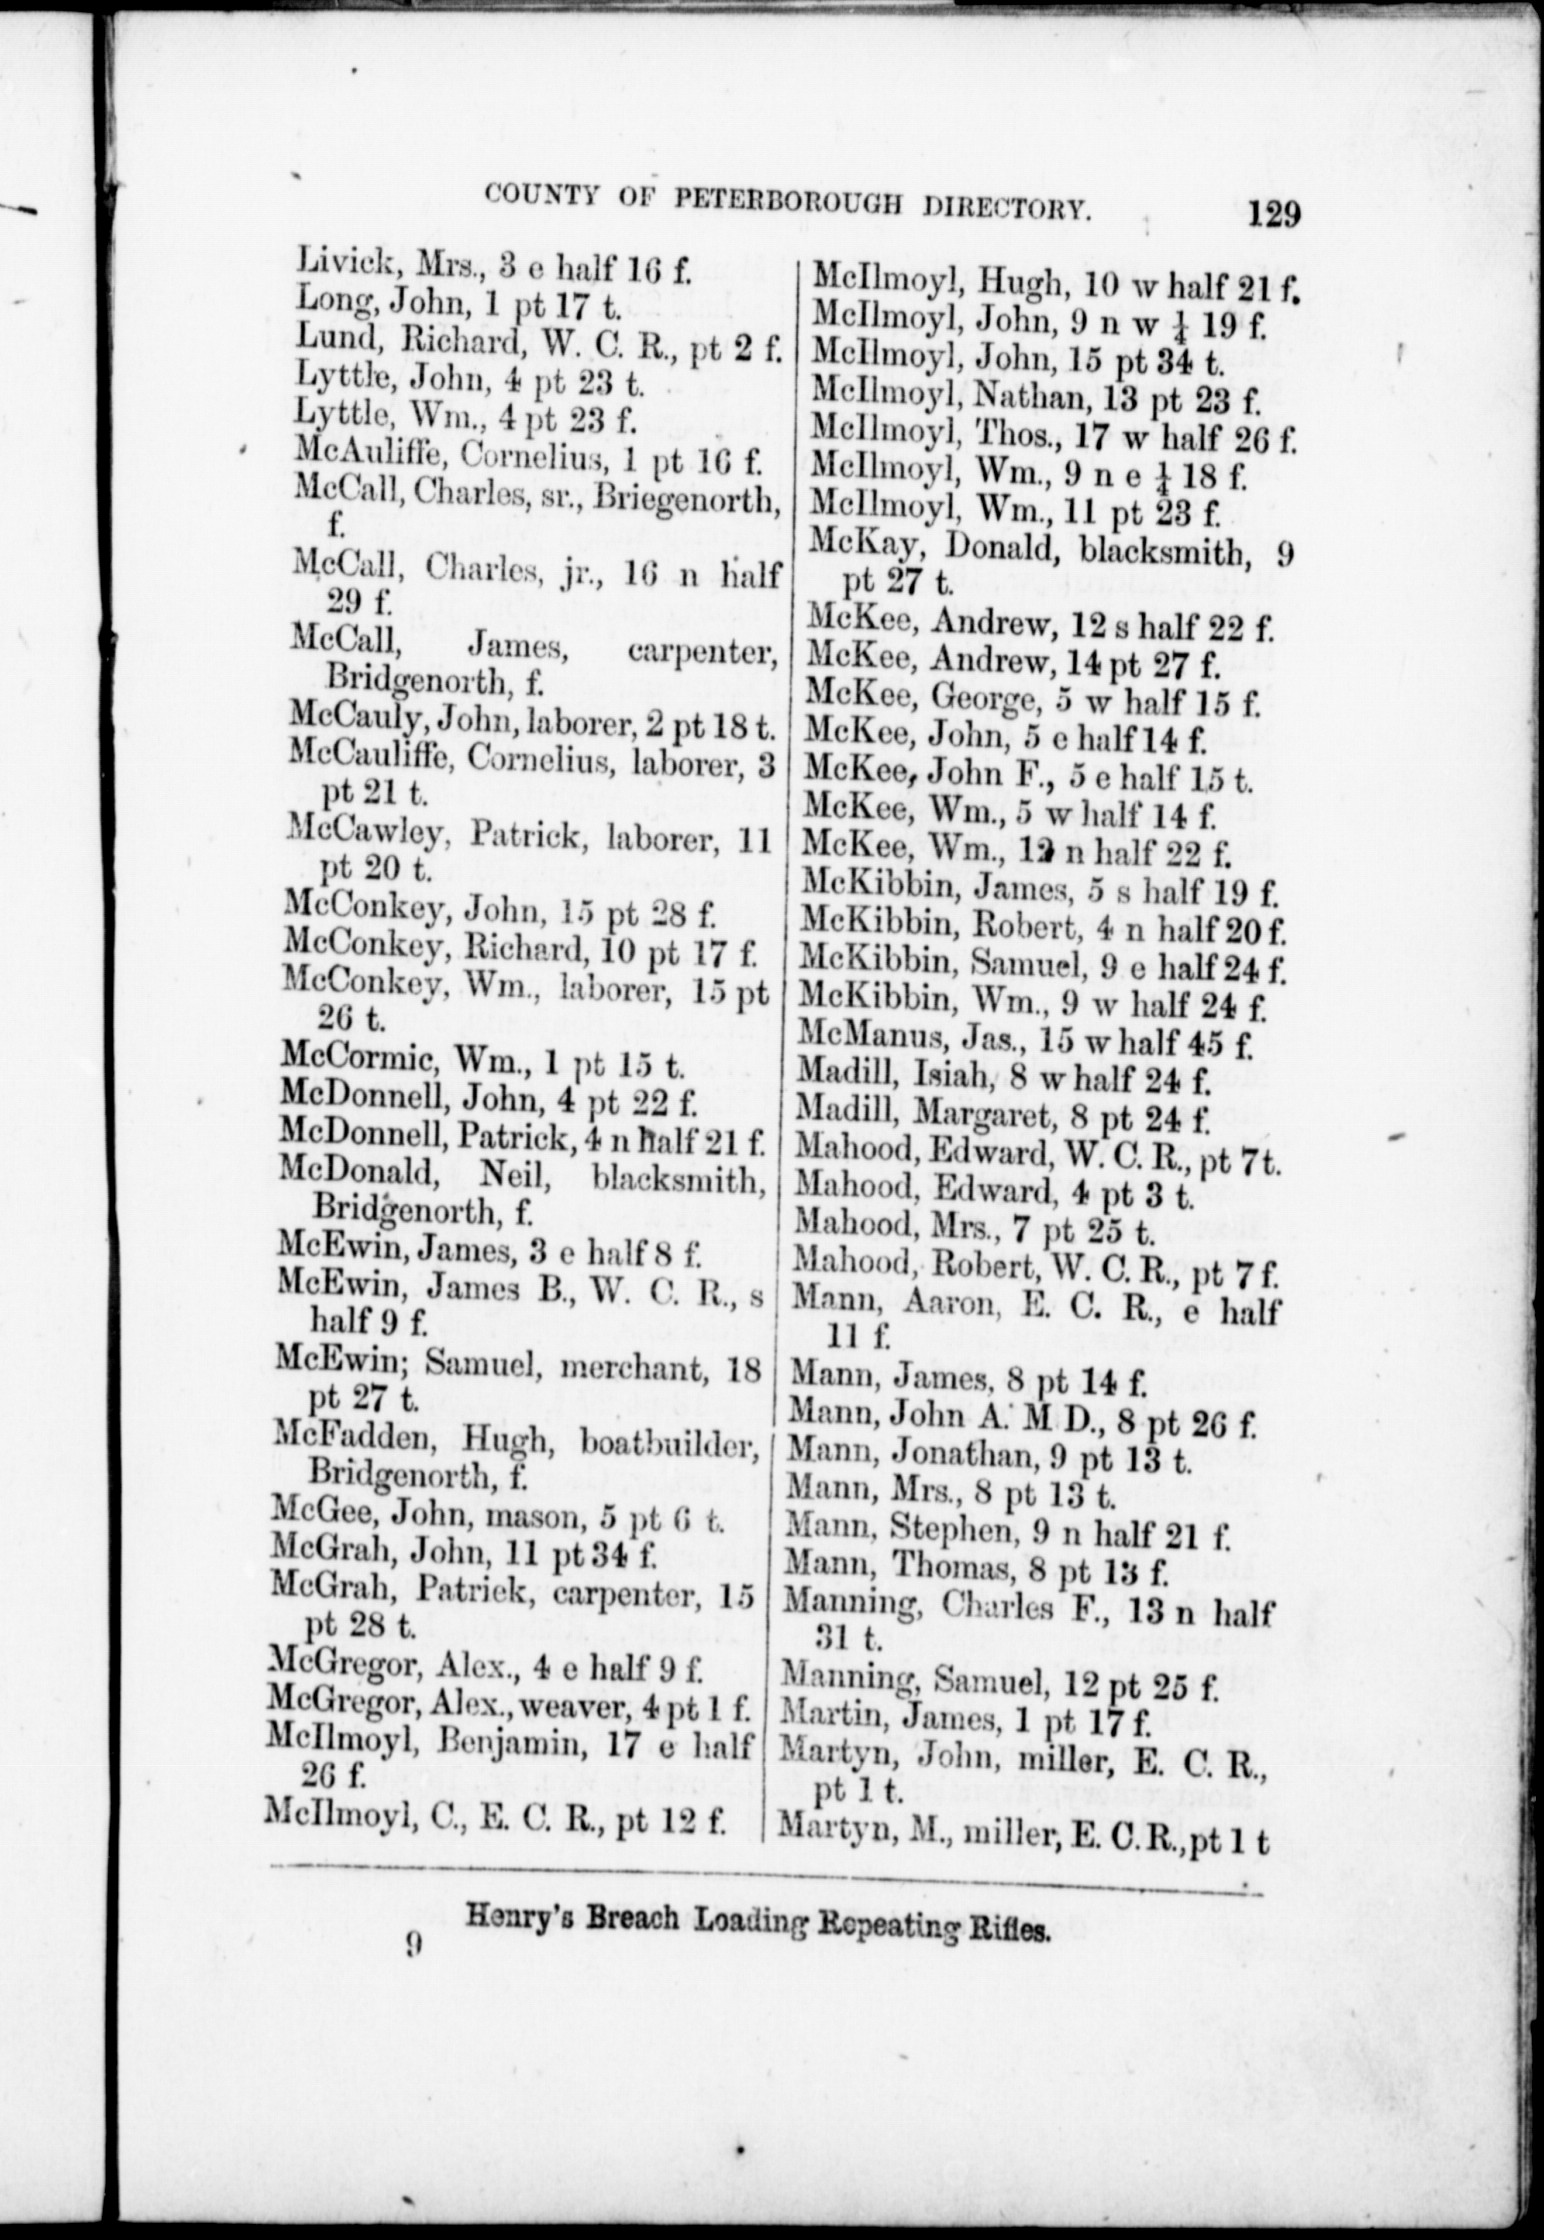 COUNTY OF PETERBOROUGH DIRECTORY. 129
Livick, Mrs., 3 e half 16 f.
Long, John, 1 pt 17 t.
Lund, Richard, W. C. R., pt 2 f.
Lyttle, John, 4 pt 23 t.
Lyttle, Wm., 4 pt 23 f.
McAuliffe, Cornelius, 1 pt 16 f.
McCall, Charles, sr., Briegenorth,
f.
McCall, Charles, jr., 16 n half
29 f.
McCall, James, carpenter,
Bridgenorth, f.
McCauly, John, laborer, 2 pt 18 t.
McCauliffe, Cornelius, laborer, 3
pt 21 t.
McCawley, Patrick, laborer, 11
pt 20 t.
McConkey, John, 15 pt 28 f.
McConkey, Richard, 10 pt 17 f.
McConkey, Wm., laborer, 15 pt
26 t.
McCormic, Wm., 1 pt 15 t.
McDonnell, John, 4 pt 22 f.
McDonnell, Patrick, 4 n half 21 f.
McDonald, Neil, blacksmith,
Bridgenorth, f.
McEwin, James, 3 e half 8 f.
McEwin, James B., W. C. R., s
half 9 f.
McEwin; Samuel, merchant, 18
pt 27 t.
McFadden, Hugh, boatbuilder,
Bridgenorth, f.
McGee, John, mason, 5 pt 6 t.
McGrah, John, 11 pt 34 f.
McGrah, Patrick, carpenter, 15
pt 28 t.
McGregor, Alex., 4 e half 9 f.
McGregor, Alex., weaver, 4 pt 1 f.
McIlmoyl, Benjamin, 17 e half
26 f.
McIlmoyl, C., E. C. R., pt 12 f.
McIlmoyl, Hugh, 10 w half 21 f.
McIlmoyl, John, 9 n w ¼ 19 f.
McIlmoyl, John, 15 pt 34 t.
McIlmoyl, Nathan, 13 pt 23 f.
McIlmoyl, Thos., 17 w half 26 f.
McIlmoyl, Wm., 9 n e ¼ 18 f.
McIlmoyl, Wm., 11 pt 23 f.
McKay, Donald, blacksmith, 9
pt 27 t.
McKee, Andrew, 12 s half 22 f.
McKee, Andrew, 14 pt 27 f.
McKee, George, 5 w half 15 f.
McKee, John, 5 e half 14 f.
McKee, John F., 5 e half 15 t.
McKee, Wm., 5 w half 14 f.
McKee, Wm., 12 n half 22 f.
McKibbin, James, 5 s half 19 f.
McKibbin, Robert, 4 n half 20 f.
McKibbin, Samuel, 9 e half 24 f.
McKibbin, Wm., 9 w half 24 f.
McManus, Jas., 15 w half 45 f.
Madill, Isiah, 8 w half 24 f.
Madill, Margaret, 8 pt 24 f.
Mahood, Edward, W. C. R., pt 7 t.
Mahood, Edward, 4 pt 3 t.
Mahood, Mrs., 7 pt 25 t.
Mahood, Robert, W. C. R., pt 7 f.
Mann, Aaron, E. C. R., e half
11 f.
Mann, James, 8 pt 14 f.
Mann, John A. M D., 8 pt 26 f.
Mann, Jonathan, 9 pt 13 t.
Mann, Mrs., 8 pt 13 t.
Mann, Stephen, 9 n half 21 f.
Mann, Thomas, 8 pt 13 f.
Manning, Charles F., 13 n half
31 t.
Manning, Samuel, 12 pt 25 f.
Martin, James, 1 pt 17 f.
Martyn, John, miller, E. C. R.,
pt 1 t.
Martyn, M., miller, E. C. R., pt 1 t
Henry's Breach Loading Repeating Rifles.
9